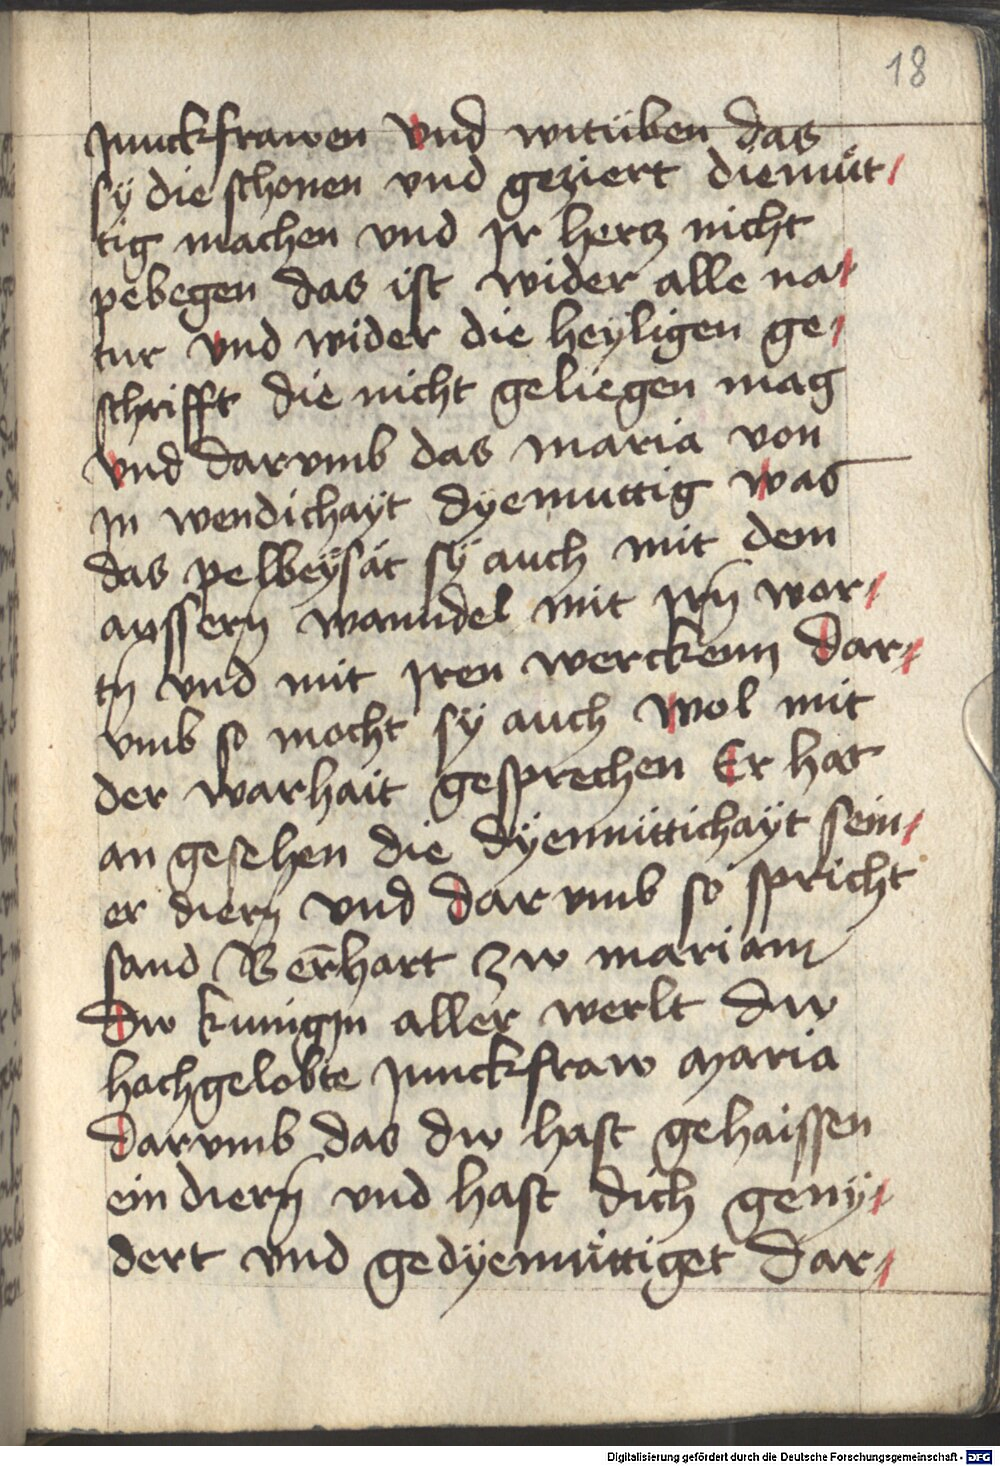 18
Junckfrawen vnd witüben das
sÿ die schonen vnd geziert diemüt/
tig machen vnd Jr hertz nicht
pebegen das ist wider alle na/
tur vnd wider die heyligen ge/
schrifft die nicht geliegen mag
vnd darvmb das maria von
Jn wendichaÿt dyemuttig was
das pelbeÿsät sÿ auch mit dem
aussern̄ wanndel mit Jrn̄ wor/
tn̄ vnd mit Jren werckenn dar/
vmb so mocht sÿ auch wol mit
der warhait gesprechen Er hat
an gesehen die dÿemüttichaÿt sein/
er diern̄ vnd dar vmb so spricht
sand Ber̄hart zw mariam
Dw kunigJn aller werlt dw
hachgelobte Junckfraw maria
Darvmb das dw hast gehaissen
ein diern̄ vnd hast dich genÿ/
dert vnd gedÿemüttiget Dar/
Digitalisierung gefördert durch die Deutsche Forschungsgemeinschaft - DFG